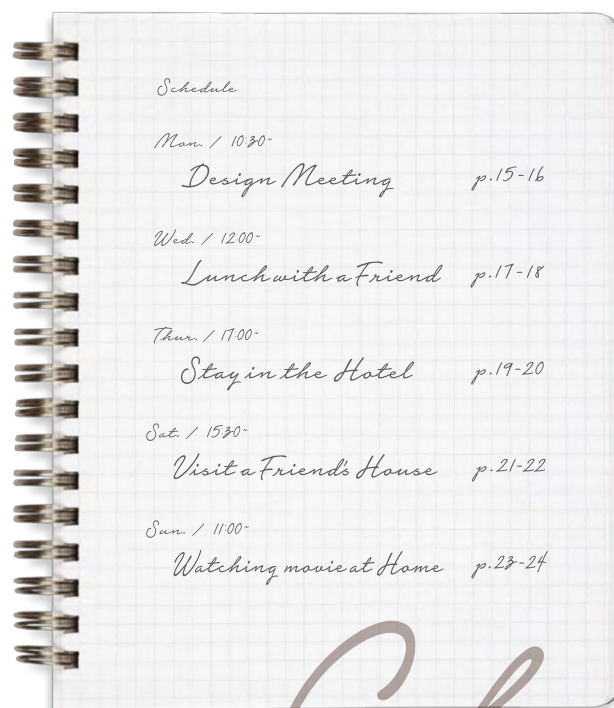 Schedule
Mon. / 10:30~
Design Meeting p.15-16
Wed. / 12:00~
Lunch with a Friend p.17-18
Thur. / 17:00~
Stay in the Hotel p.19-20
Sat. / 15:30~
Visit a Friend's House p.21-22
Sun. / 11:00~
Watching movie at Home p.23-24